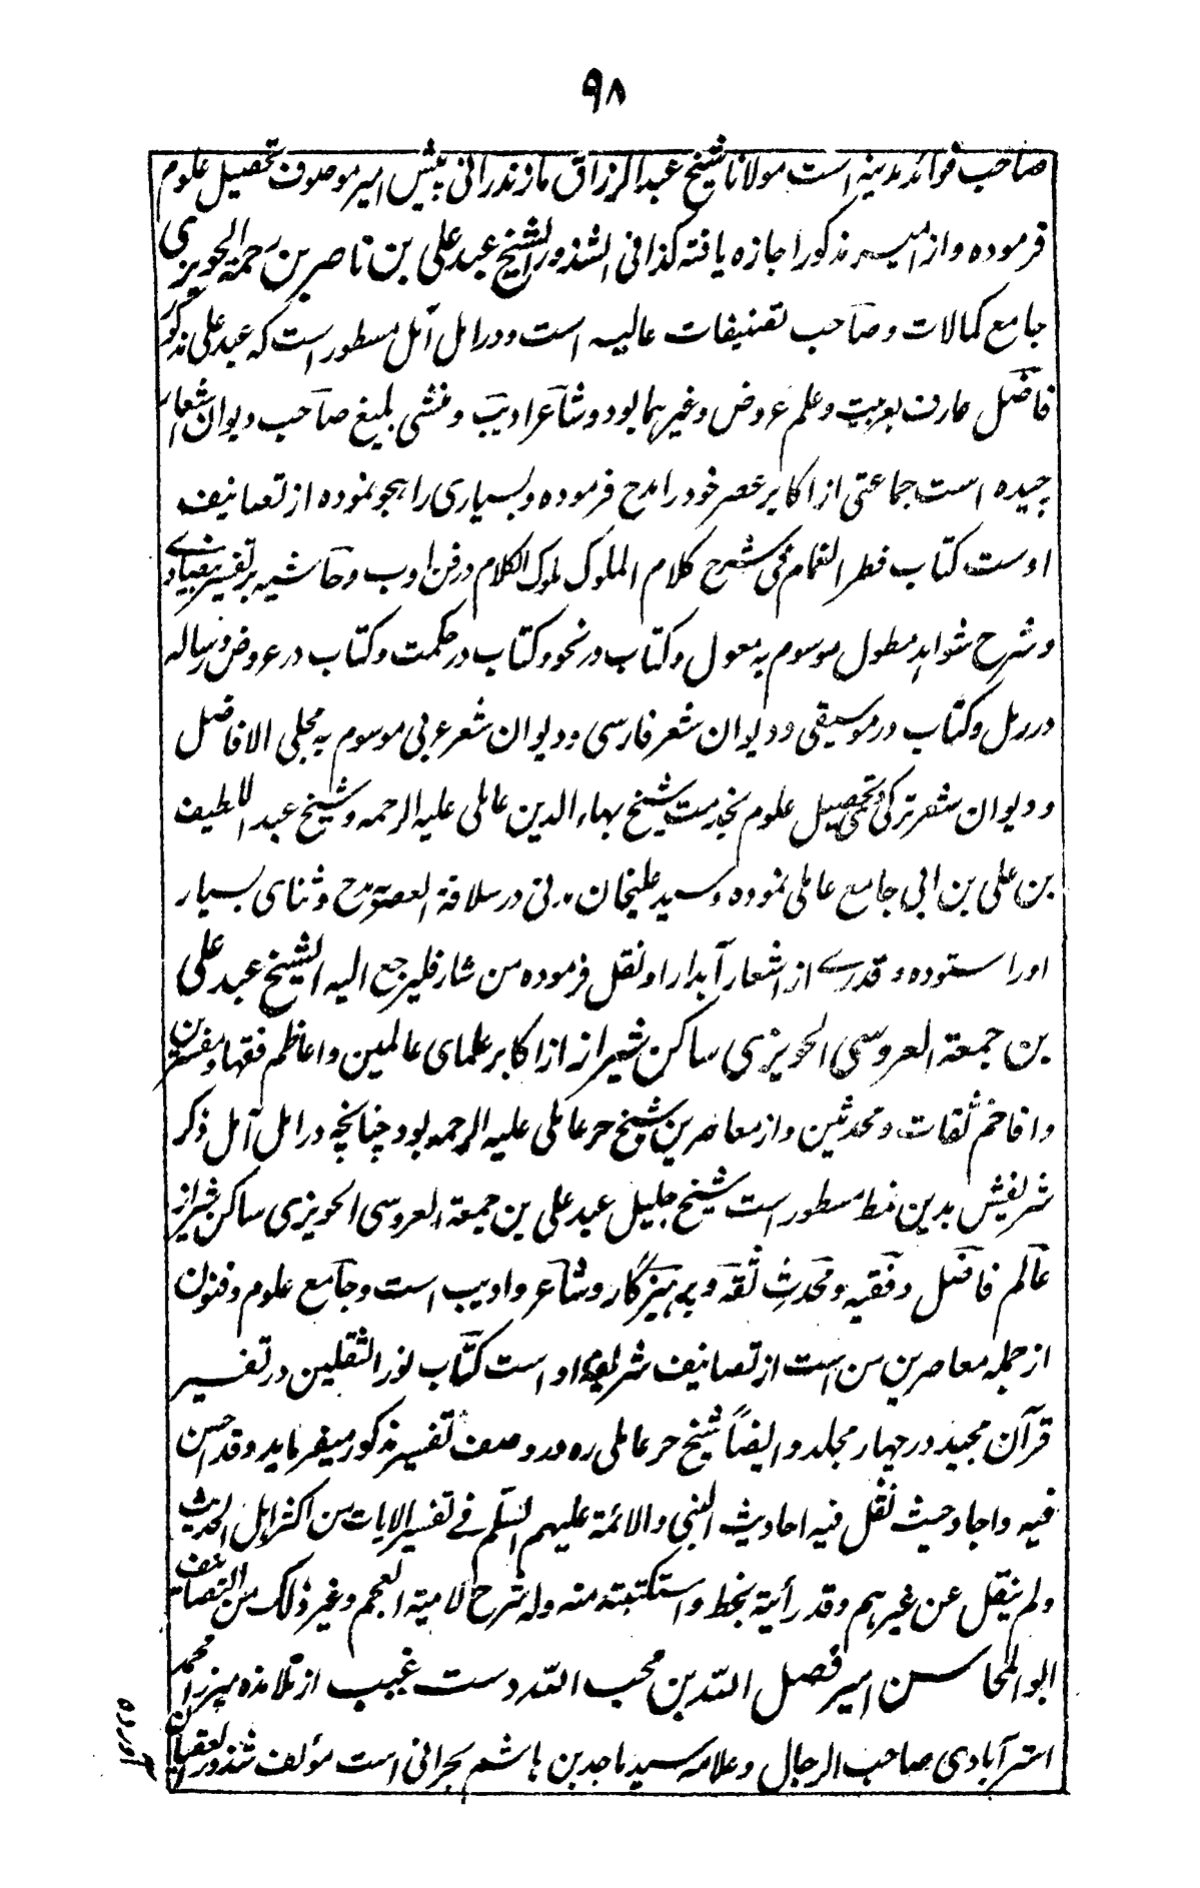 ۹۸
صاحب فوائد مدنیه است مولانا شیخ عبدالرزاق مازندرانی پیش امیر موصوف تحصیل علوم
فرموده و از امیر مذکور اجازه یافته کذا فی الشذور الشیخ عبد علی بن ناصر بن رحمة الحویزی
جامع کمالات و صاحب تصنیفات عالیه است و در امل آمل مسطور است که عبد علی مذکور
فاضل عارف بعربیت و علم عروض و غیرهما بود و شاعر ادیب و منشی بلیغ صاحب دیوان اشعار
چیده است جماعتی از اکابر عصر خود را مدح فرموده و بسیاری را هجو نموده از تصانیف
اوست کتاب قطر الغمام فی شرح کلام الملوک ملوک الکلام در فن ادب و حاشیه بر تفسیر بیضاوے
و شرح شواهد مطول موسوم به معول و کتاب در نحو و کتاب در حکمت و کتاب در عروض و رساله
در رمل و کتاب در موسیقی و دیوان شعر فارسی و دیوان شعر عربی موسوم به مجلی الافاضل
و دیوان شعر ترکی تحصیل علوم بخدمت شیخ بهاء الدین عاملی علیه الرحمه و شیخ عبد اللطیف
بن علی بن ابی جامع عاملی نموده و سید علیخان مدنی در سلافة العصر مدح و ثنای بسیار
اورا ستوده و قدرے از اشعار آبدار او نقل فرموده من شاء فلیرجع الیه الشیخ عبد علی
بن جمعة العروسی الحویزی ساکن شیراز از اکابر علمای عالمین و اعاظم فقها و مفسرین
و افاخم ثقات و محدثین و از معاصرین شیخ حر عاملی علیه الرحمه بود چنانچه در امل آمل ذکر
شریفش بدین نمط مسطور است شیخ جلیل عبد علی بن جمعة العروسی الحویزی ساکن شیراز
عالم فاضل و فقیه و محدث ثقه و پرهیزگار و شاعر و ادیب است و جامع علوم و فنون
از جمله معاصرین من است از تصانیف شریفه او است کتاب نور الثقلین در تفسیر
قرآن مجید در چهار مجلد و ایضاً شیخ حر عاملی ره در وصف تفسیر مذکور میفرماید و قد احسن
فیه و اجاد حیث نقل فیه احادیث النبی والائمة علیهم السّلم فے تفسیر الایات من اکثر اهل الحدیث
و لم ینقل عن غیرهم و قد رأیته بخطه و استکتبته منه و له شرح لامیة العجم و غیر ذلک من التصانیف
ابوالمحاسن امیر فضل الله بن محب الله دست غیب از تلامذه میرزا محمد
استرآبادی صاحب الرجال و علامه سید ماجد بن هاشم بحرانی است مؤلف شذور العقیان
آورده